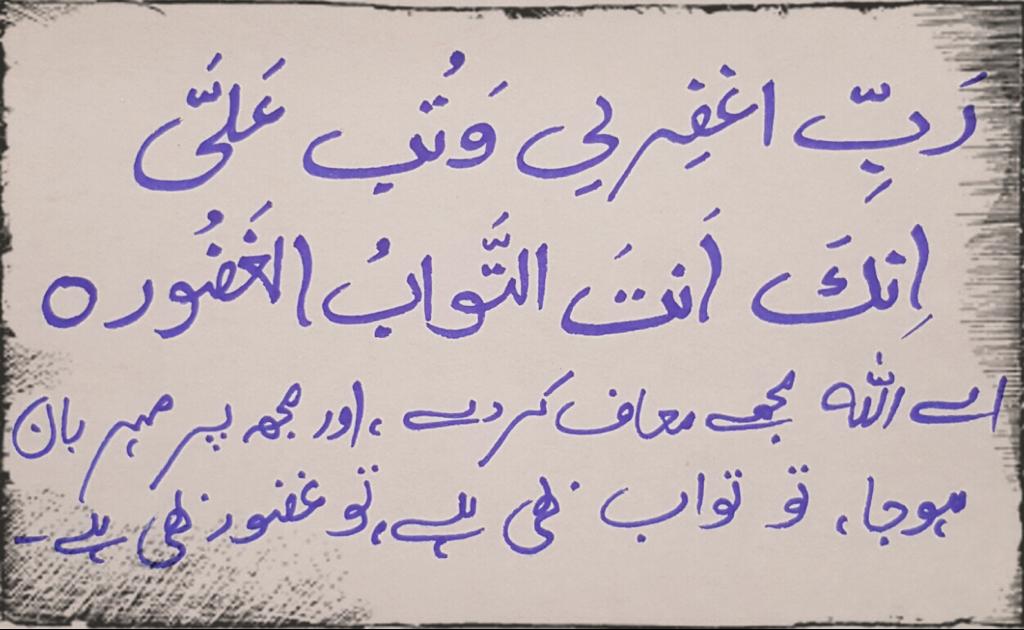 رَبِّ اغفِر لِي وَتُب عَلَىَّ
اِنكَ اَنتَ التَّوابُ الغَفُور ه
اے اللّٰہ مجھے معاف کر دے ، اور مجھ پر مہربان
ہوجا ، تو تواب بھی ہے ، تو غفور بھی ہے ۔